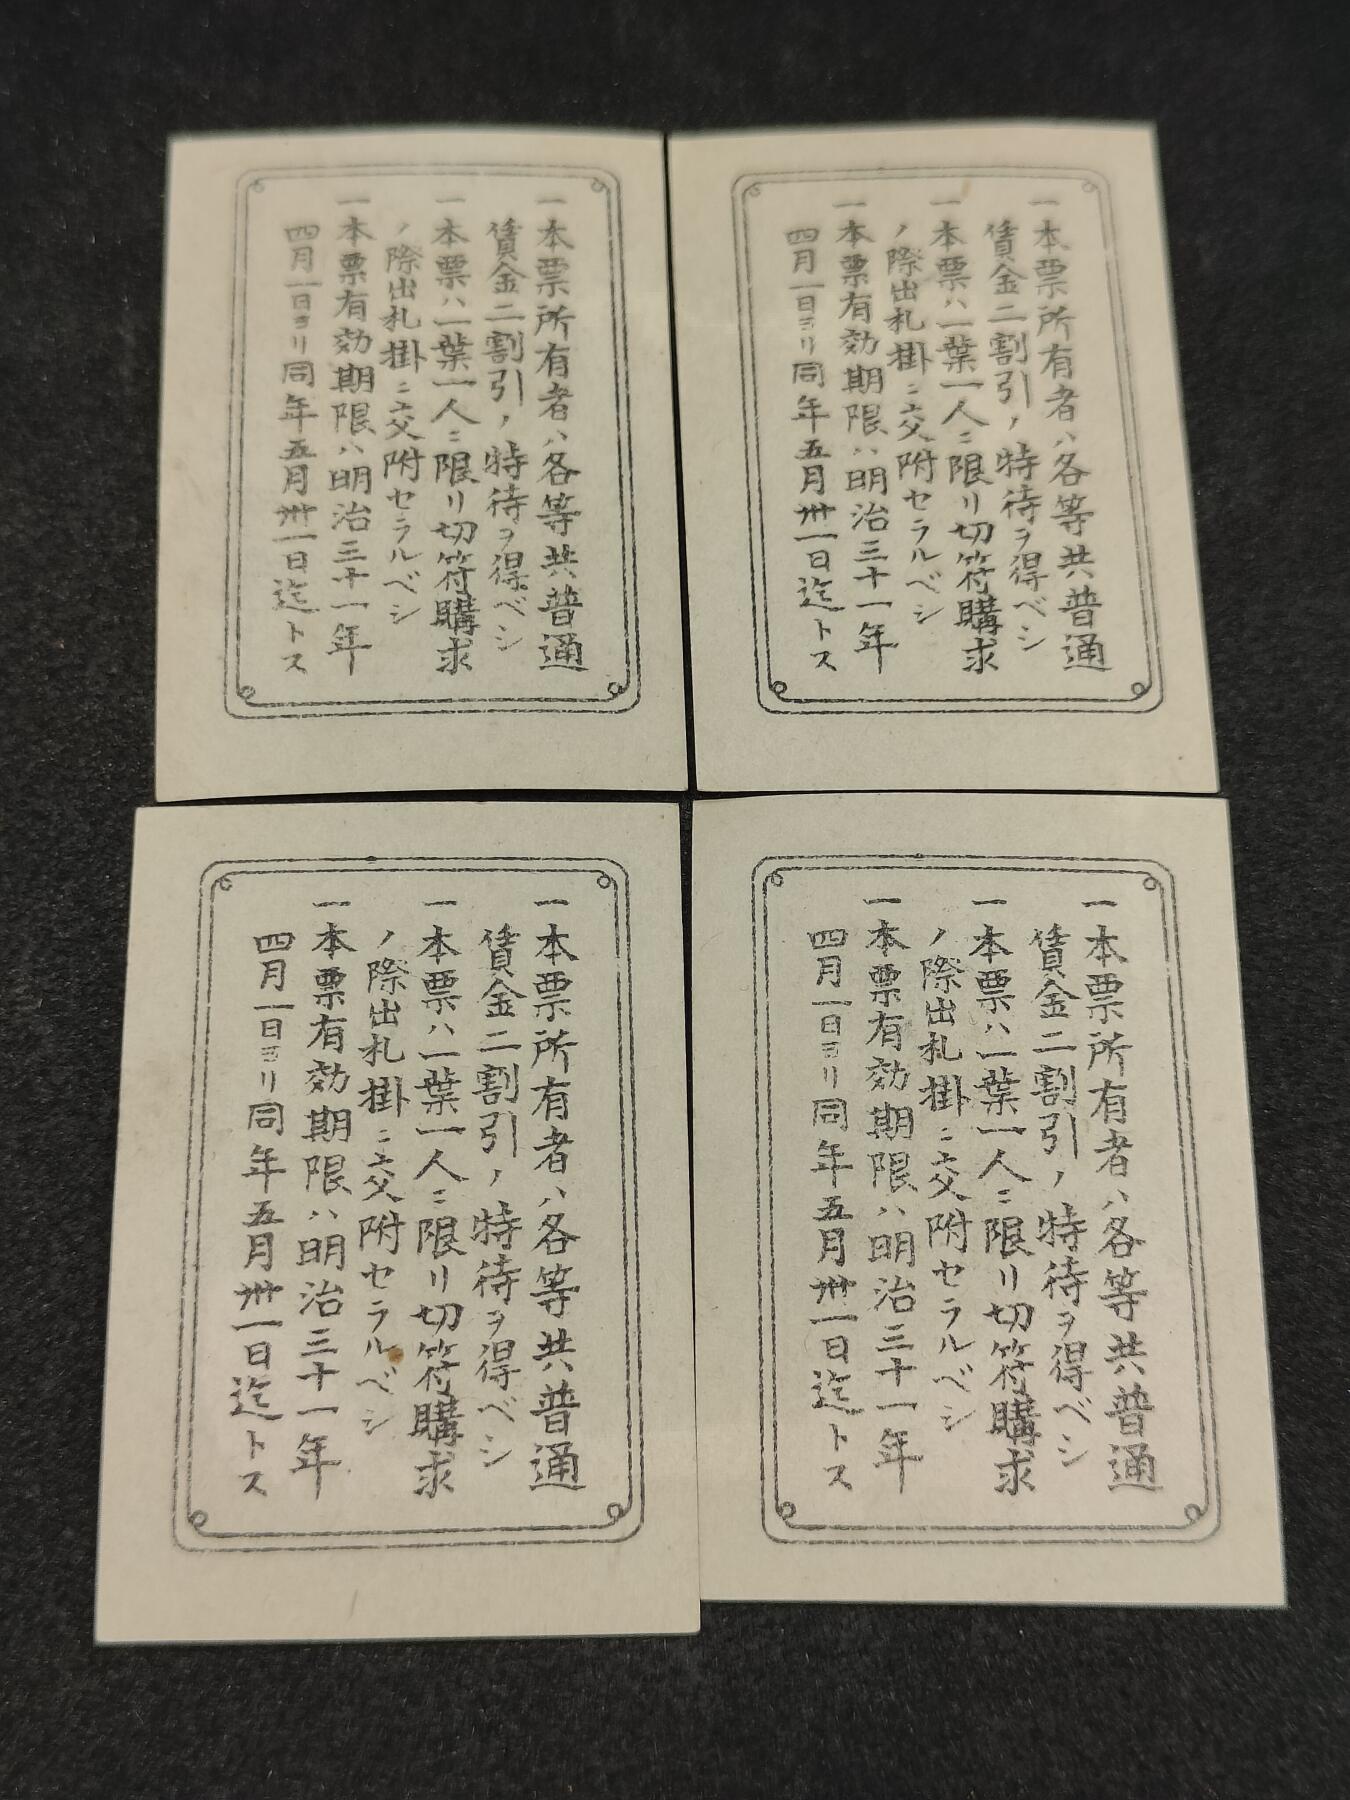 一本票所有者ハ各等共普通
賃金二割引ノ特待ヲ得ベシ
一本票ハ一葉一人ニ限リ切符購求
ノ際出札掛ニ交附セラルベシ
一本票有効期限ハ明治三十一年
四月一日ヨリ同年五月卅一日迄トス
一本票所有者ハ各等共普通
賃金二割引ノ特待ヲ得ベシ
一本票ハ一葉一人ニ限リ切符購求
ノ際出札掛ニ交附セラルベシ
一本票有効期限ハ明治三十一年
四月一日ヨリ同年五月卅一日迄トス
一本票所有者ハ各等共普通
賃金二割引ノ特待ヲ得ベシ
一本票ハ一葉一人ニ限リ切符購求
ノ際出札掛ニ交附セラルベシ
一本票有効期限ハ明治三十一年
四月一日ヨリ同年五月卅一日迄トス
一本票所有者ハ各等共普通
賃金二割引ノ特待ヲ得ベシ
一本票ハ一葉一人ニ限リ切符購求
ノ際出札掛ニ交附セラルベシ
一本票有効期限ハ明治三十一年
四月一日ヨリ同年五月卅一日迄トス